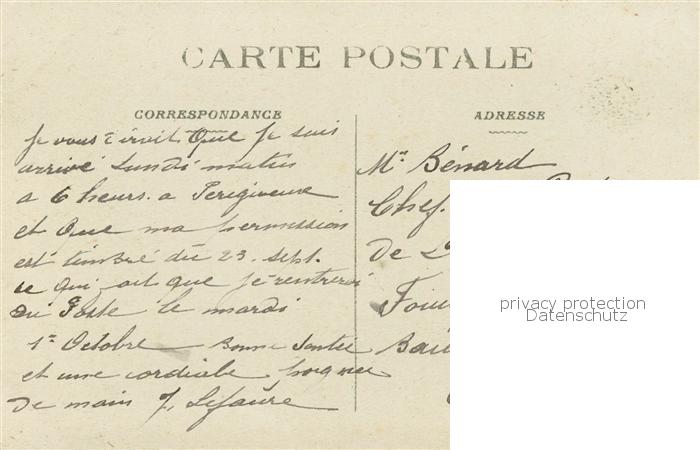 CARTE POSTALE
CORRESPONDANCE
ADRESSE
Je vous Que Je suis
arrivé Lundi matin
a 6 heurs. a
et Que ma permission
est timbré du 23. Sept.
ce qui fait que je rentrerai
au Poste le mardi
1er Octobre Bonne Santée
et une cordiale poignee
De main J. Lefaure
Mr Bénard
Chef.
De
privacy protection
Datenschutz